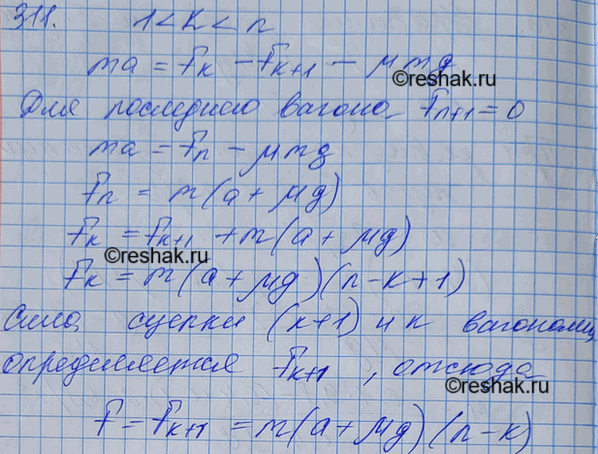 311. 1 < k < n
ma = Fk - Fk+1 - μmg
©reshak.ru
Для последнего вагона Fn+1 = 0
ma = Fn - μmg
Fn = m(a + μg)
Fk = Fk+1 + m(a + μg)
©reshak.ru
Fk = m(a + μg)(n-k+1)
Сила сцепки (k+1) и k вагонами
определяется Fk+1, отсюда
©reshak.ru
F = Fk+1 = m(a + μg)(n-k)